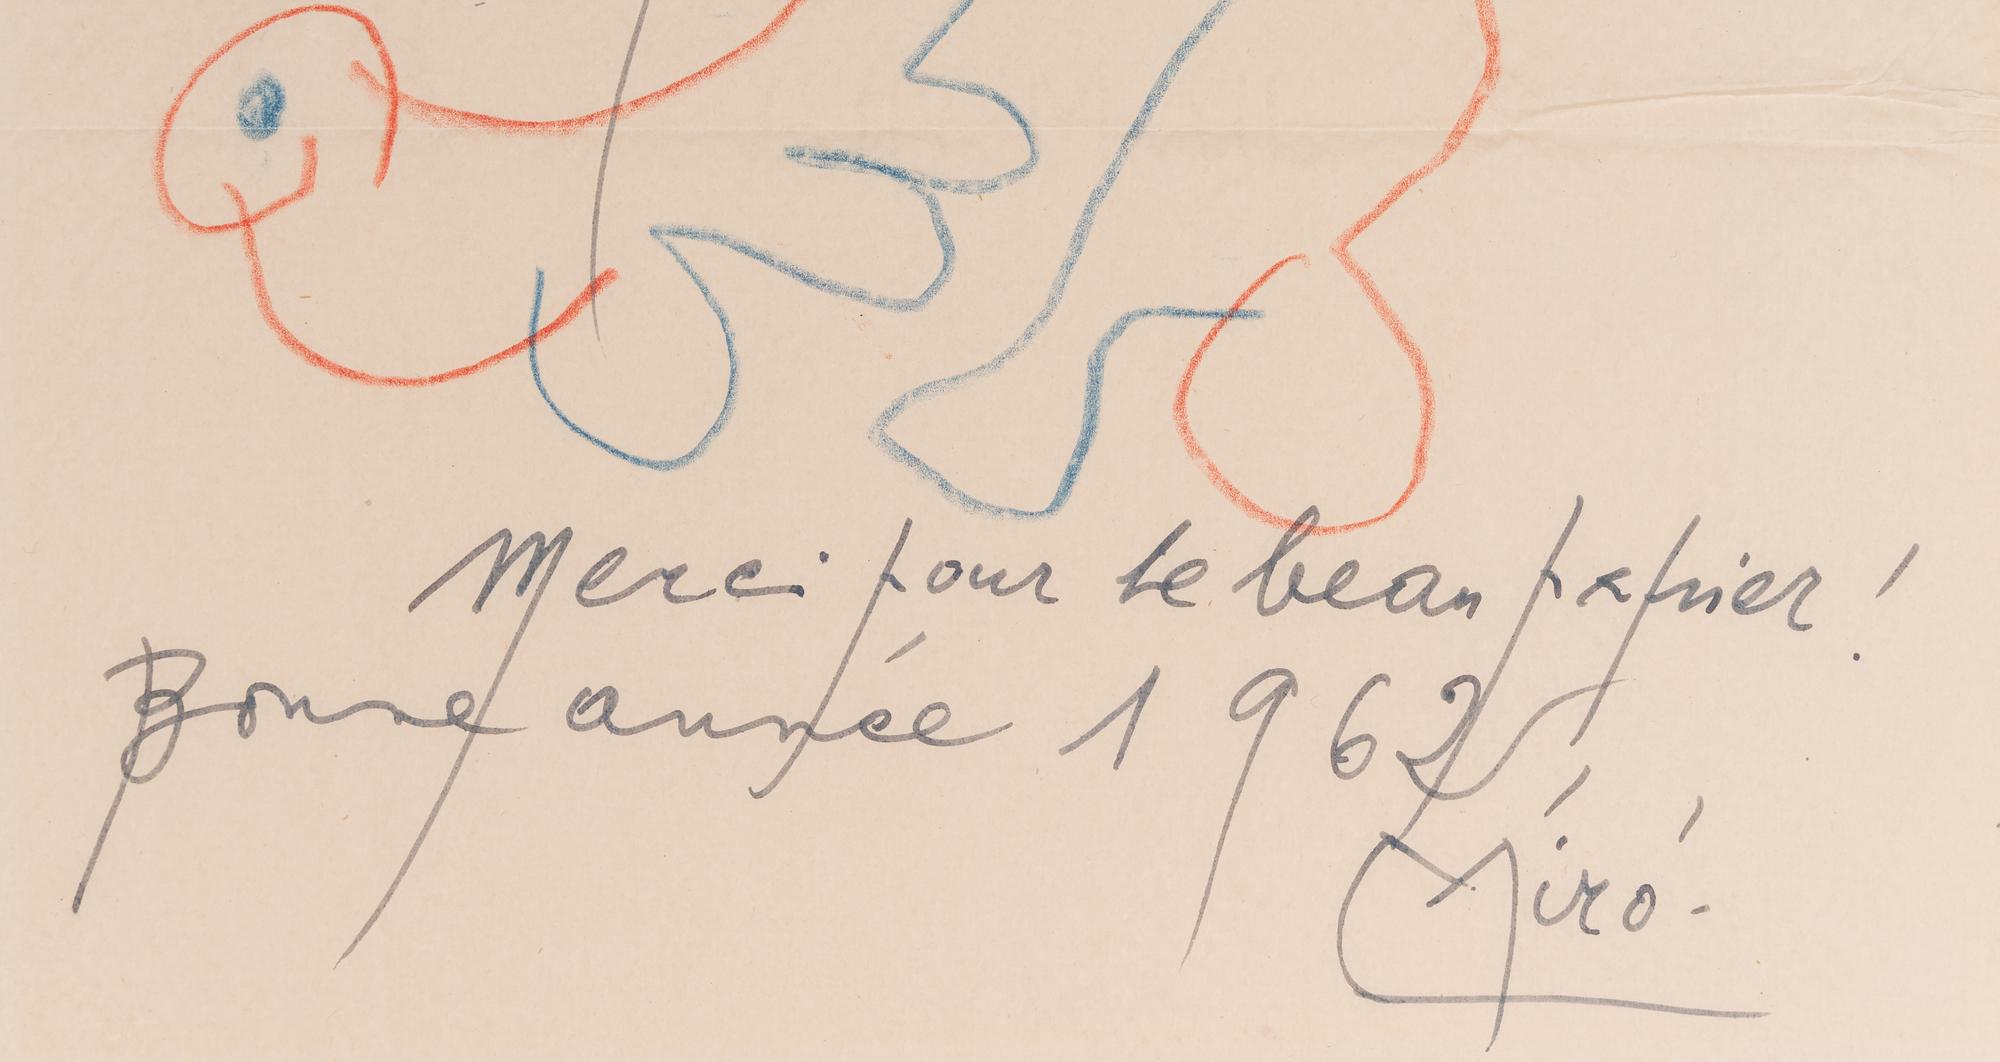 Merci pour le beau papier !
Bonne année 1962
Miró.